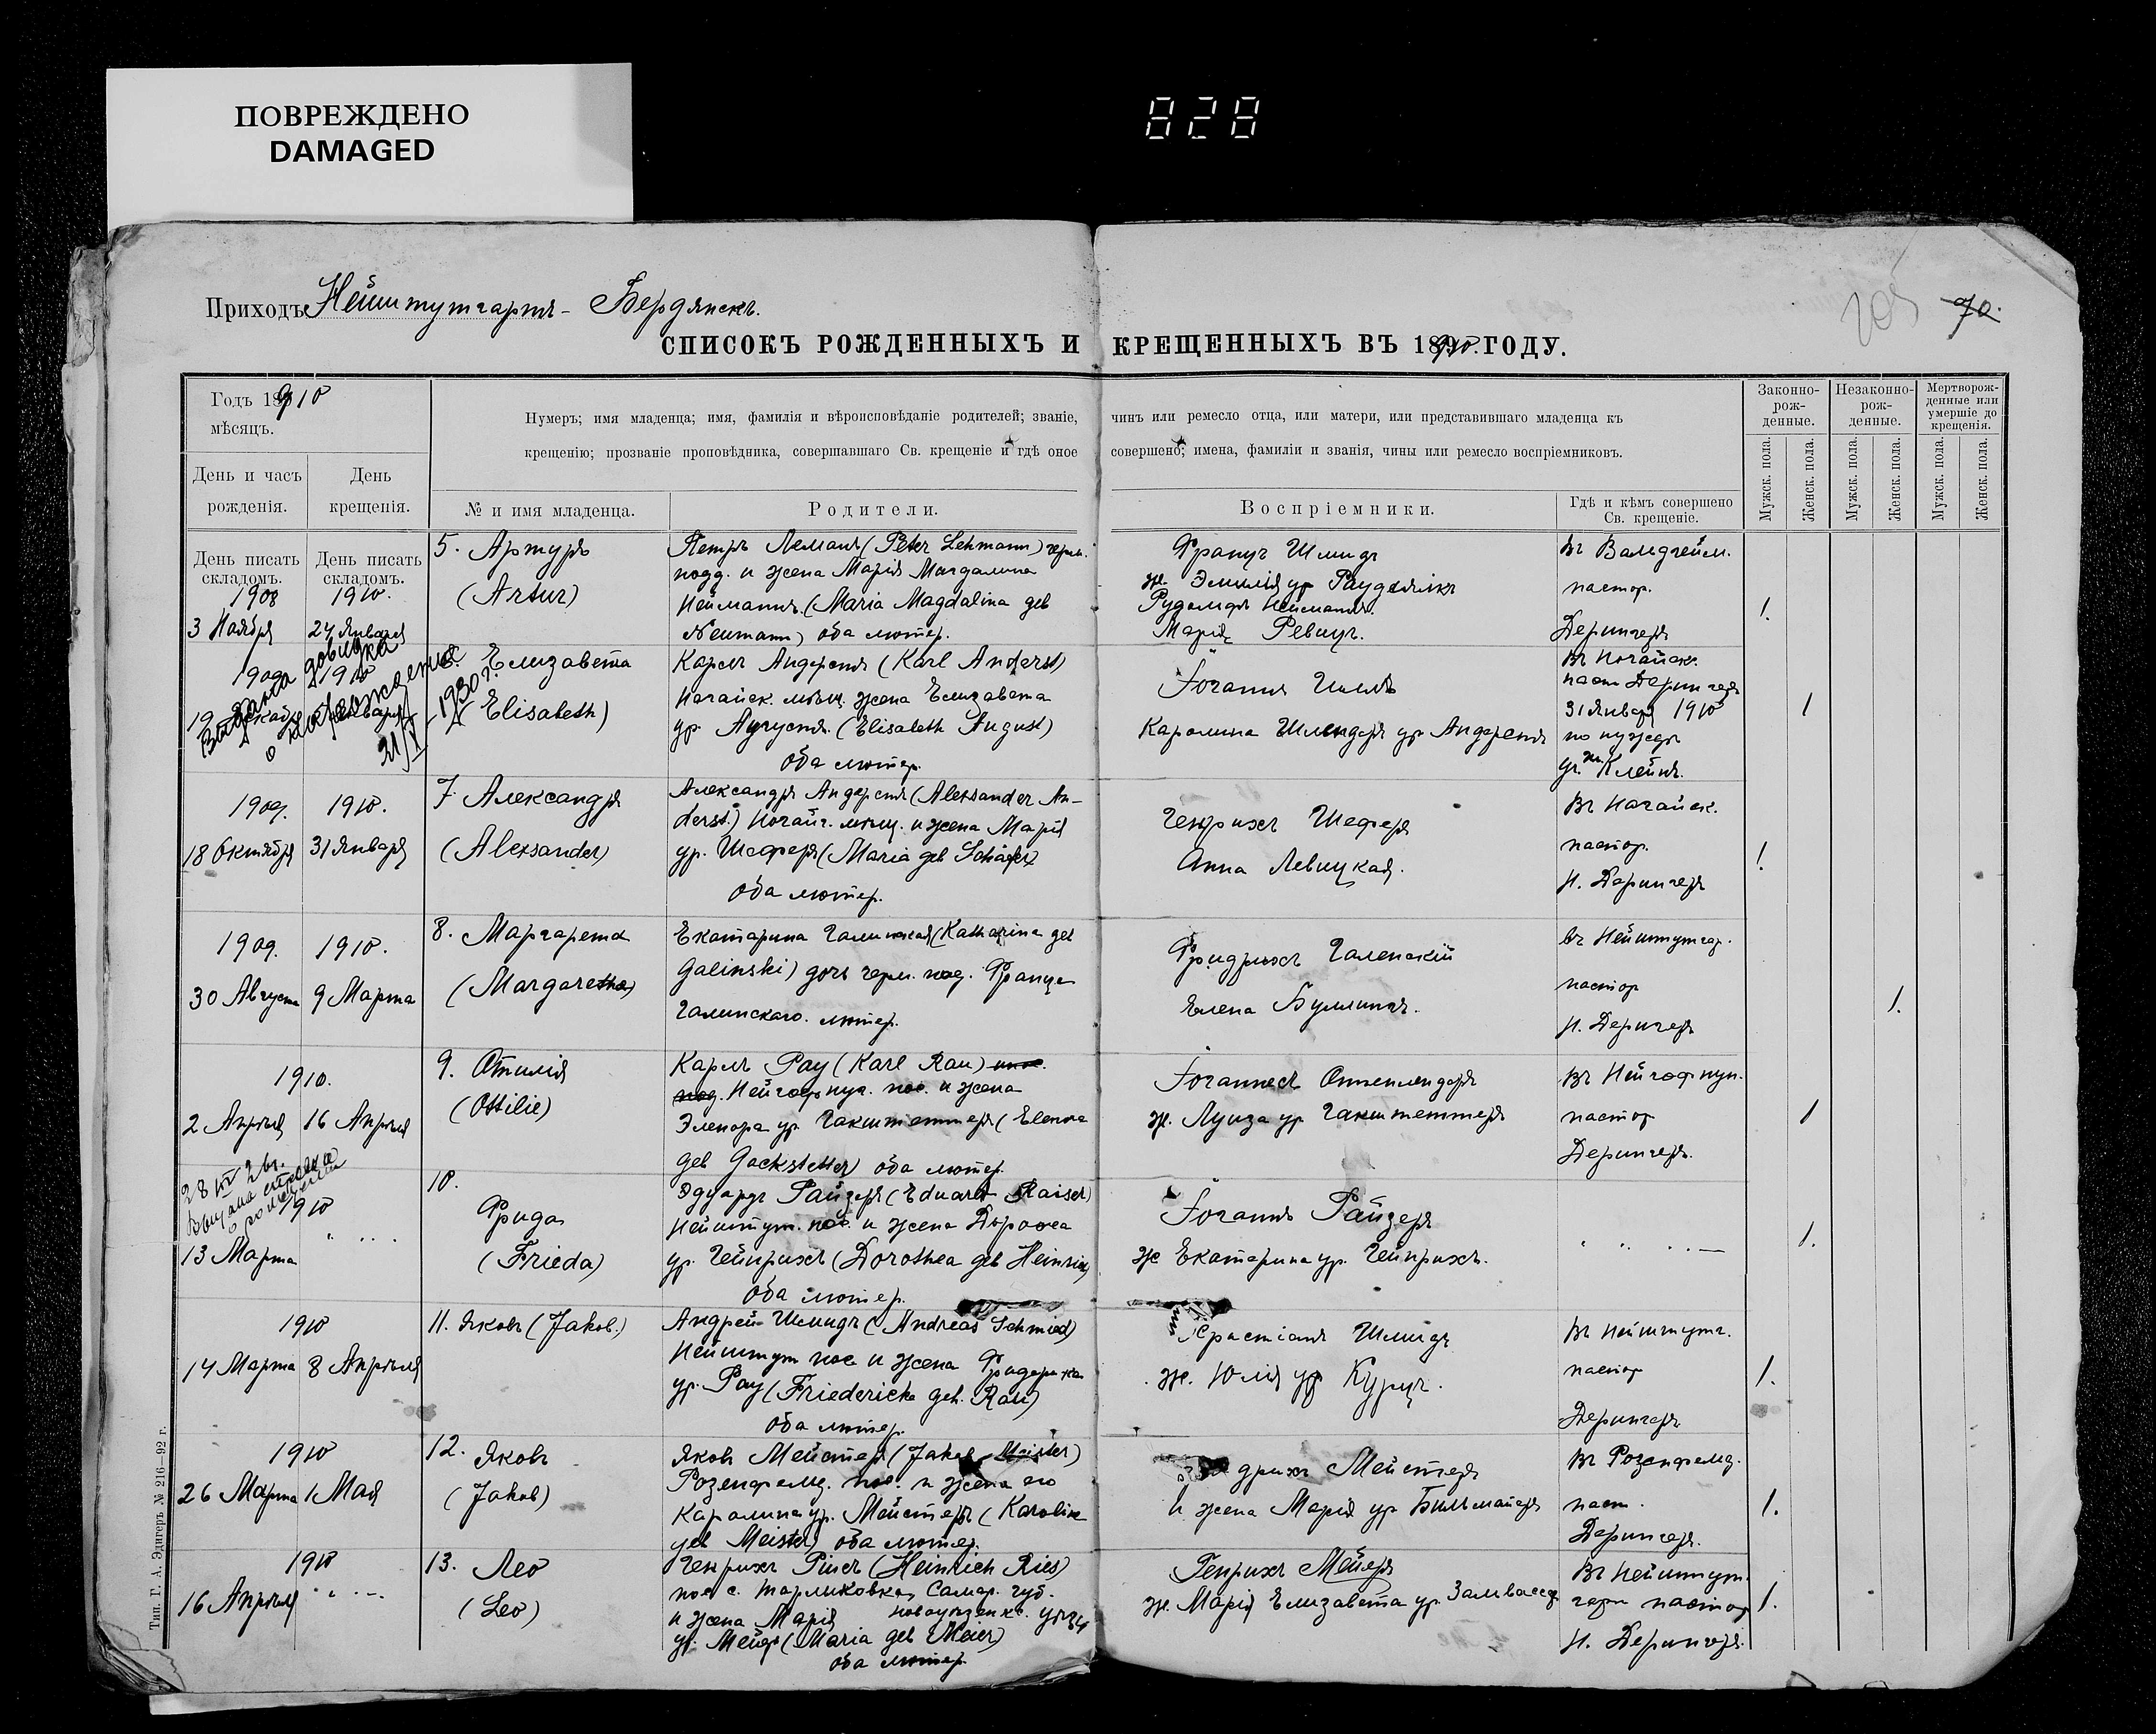 ПОВРЕЖДЕНО
DAMAGED
828
Приходъ Нейштутгартъ - Бердянскъ.
70.
СПИСОКЪ РОЖДЕННЫХЪ И КРЕЩЕННЫХЪ ВЪ 1910. ГОДУ.
Годъ 1910
мѣсяцъ.
День и часъ
рожденія.
День
крещенія.
Нумеръ; имя младенца; имя, фамилія и вѣроисповѣданіе родителей; званіе, чинъ или ремесло отца, или матери, или представившаго младенца къ
крещенію; прозваніе проповѣдника, совершавшаго Св. крещеніе и гдѣ оное совершено; имена, фамиліи и званія, чины или ремесло воспріемниковъ.
№ и имя младенца.
Родители.
Воспріемники.
Гдѣ и кѣмъ совершено
Св. крещеніе.
Законно-
рож-
денные.
Незаконно-
рож-
денные.
Мертворож-
денные или
умершіе до
крещенія.
Мужск. пола.
Женск. пола.
Мужск. пола.
Женск. пола.
Мужск. пола.
Женск. пола.
День писать
складомъ.
День писать
складомъ.
1908
3 Ноября
1910.
24 Января
5. Артуръ
(Artur)
Петръ Леманъ (Peter Lehmann) герм.
подд. и жена Марія Магдалина
Нейманнъ. (Maria Magdalina geb
Neumann) оба лютер.
Францъ Шмидт
ж. Эмилія ур
Рудольфъ Нейманнъ.
Марія Ревицъ.
Въ Вальдгейм.
пастор.
Дерингеръ
1.
1909
19 Декабр
1910
Января
Выдана довидка
о народження
21/V 1930 г.
6. Елизавета
(Elisabeth)
Карлъ Андерстъ (Karl Anderst)
Ногайск. мѣщ. жена Елизавета
ур. Аугустъ. (Elisabeth August)
оба лютер.
Іоганнъ
Каролина ур Андерстъ
Въ Ногайск.
паст Дерингеръ
31 Января 1910
по нуждѣ
уч. Клейнъ.
1
1909.
18 Октября
1910.
31 Января
7. Александръ
(Alexsander)
Александръ Андерстъ (Alexsander An-
derst.) Ногайс. мѣщ. и жена Марія
ур. Шеферъ (Maria geb Schäfer)
оба лютер.
Генрихъ Шеферъ
Анна Левицкая.
Въ Ногайск.
пастор.
Н. Дерингеръ
1.
1909.
30 Августа
1910.
9 Марта
8. Маргарета
(Margaretha)
Екатерина Галинская (Katharina geb
Galinski) дочь герм. под. Франца
Галинскаго. лютер.
Фридрихъ Галенскій
Елена
въ Нейштутгар.
пастор
Н. Дерингеръ
1.
1910.
2 Апрѣля
16 Апрѣля
9. Отилія
(Ottilie)
Карлъ Рау (Karl Rau)
под. Нейгофнуг. пос. и жена
Элеонора ур. Гакштеттеръ (Elenora
geb Gackstetter) оба лютер.
Іоганнесъ Оттенлендеръ
ж. Луиза ур Гакштеттеръ
Въ Нейгофнун.
пастор
Дерингеръ.
1
28 IV 26 г.
Выдана справка
о рождении
1910
13 Марта
" ...
10.
Фрида
(Frieda)
Эдуардъ Райзеръ (Eduard Raiser)
Нейштут. пос. и жена Дорофеа
ур. Гейнрихъ (Dorothea geb Heinrich)
оба лютер.
Іоганнъ Райзеръ
ж Екатерина ур. Гейнрихъ.
" " .. —
1.
1910
14 Марта
8 Апрѣля
11. Яковъ (Jakob.)
Андрей Шмидъ (Andreas Schmied)
Нейштут пос и жена Фридерика
ур. Рау (Friedericka geb. Rau)
оба лютер.
Христіанъ Шмидъ
ж. Юлія ур Курцъ.
Въ Нейштутг.
пастор
Дерингеръ
1.
1910
26 Марта
1 Мая
12. Яковъ
(Jakob)
Яковъ Мейстеръ (Jakob Meister)
Розенфельд. пос. и жена его
Каролина ур. Мейстеръ (Karoline
geb Meister) оба лютер.
дрихъ Мейстеръ
и жена Марія ур
Въ Розенфельд.
паст.
Дерингеръ.
1.
1910
16 Апрѣля
" " —
13. Лео
(Leo)
Генрихъ Рисъ (Heinrich Ries)
пос с. Тарлыковка, Самар. губ.
и жена Марія новоузенск. уѣзда
ур. Мейеръ (Maria geb Meier)
оба лютер.
Генрихъ Мейеръ
ж. Марія Елизавета ур.
Въ Нейштут-
гарт пастор
Н. Дерингеръ.
1.
Тип. Г. А. Эдигеръ № 216—92 г.